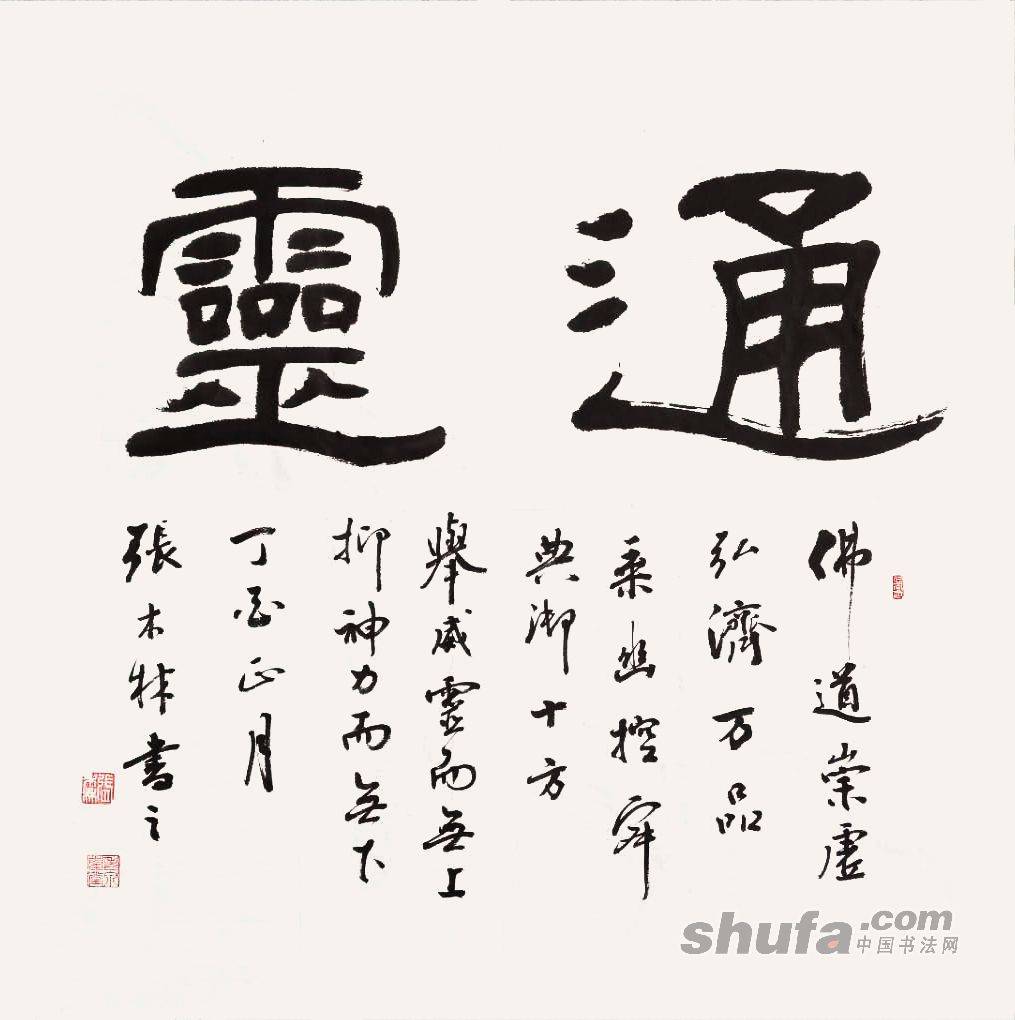 通靈
佛道崇虛
弘濟万品
乘幽控寂
典御十方
舉威靈而無上
抑神力而無下
丁酉正月
張木林書之
shufa.com
中国书法网